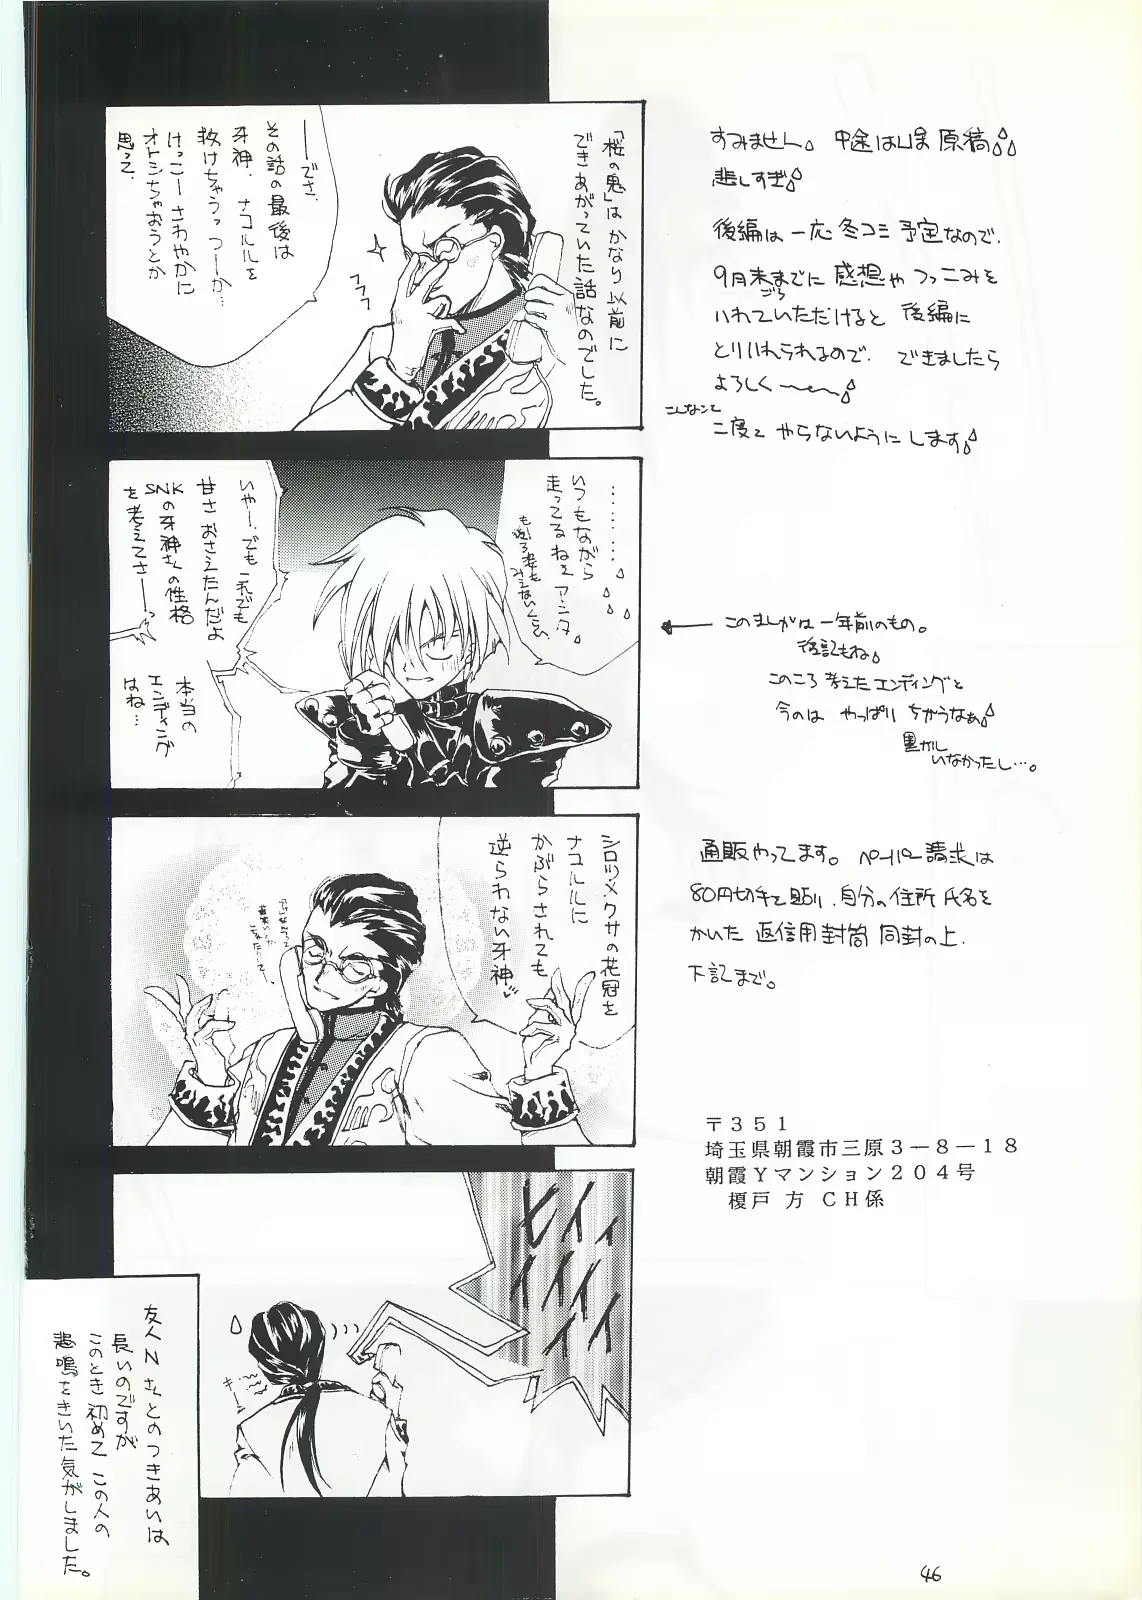 「桜の鬼」はかなり以前に
できあがっていた話なのでした。
フフフ
――でさ、
その話の最後は
牙神、ナコルルを
救けちゃうっつーか…
けっこーさわやかに
オトシちゃおうとか
思って、
…………
いつもながら
走ってるねェアンタ
もう後ろ姿も
みえないくらい
いやー、でもこれでも
甘さおさえたんだよ
SNKの牙神さんの性格
を考えてさ――っ
本当の
エンディング
はね…
シロツメクサの花冠を
ナコルルに
かぶらされても
逆らわない牙神
ヒイィ
イイイイ
イイ
キーン
友人Nさんとのつきあいは
長いのですが
このとき初めてこの人の
悲鳴をきいた気がしました。
すみません。中途はしま原稿
悲しすぎ
後編は一応冬コミ予定なので、
9月末までに感想やつっこみを
ごろ
いれていただけると後編に
とりいれられるので、できましたら
よろしく〜〜
こんなんて
二度とやらないようにします
← このまんがは一年前のもの。
後記もね
このころ考えたエンディングと
今のはやっぱりちがうなぁ
いなかったし…。
通販やってます。ペーパー請求は
80円切手を貼り、自分の住所氏名を
かいた返信用封筒同封の上、
下記まで。
〒351
埼玉県朝霞市三原3-8-18
朝霞Yマンション204号
榎戸 方 CH係
46